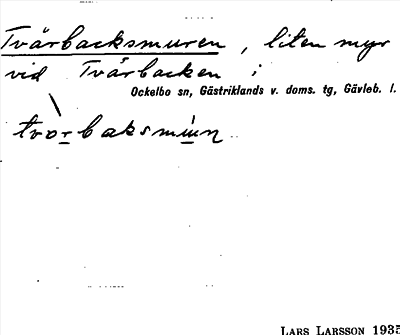 Tvärbacksmuren, liten myr
vid Tvärbacken i
Ockelbo sn, Gästriklands v. doms. tg, Gävleb. l.
LARS LARSSON 1935